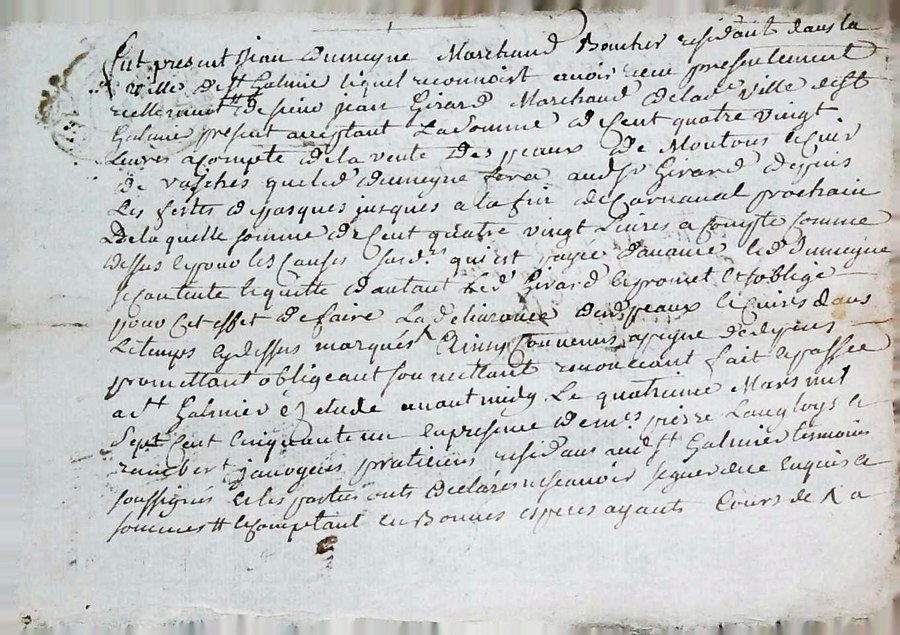 fut present Jean Dumeyne Marchand Boucher residant dans la
ville de st Galmie lequel reconnoit avoir receu presentement
reellement de sieur Jean Girard Marchand de lad ville de st
Galmie present acceptant La somme de Cent quatre vingt
Livres a compte de la vente Des peaux De Moutons et Cuir
De vaches que led Dumeyne fera aud sr Girard depuis
Les festes de pasques jusques a la fin de Carnaval prochain
De la quelle somme de Cent quatre vingt Livres a Compte Comme
Dessus et pour les Causes susd. qui est payée d'avance led Dumeyne
se Contente et quitte d'autant led Girard et promet et s'oblige
pour Cet effet de faire La delivrance desd peaux et Cuirs dans
Le temps cy dessus marqués Ainsy Convenus a peyne de depens
promettant obligeant soumettant renonceant fait et passé
a st Galmier etude avant midy Le quatrieme Mars mil
sept Cent Cinquante un en presence de me. pierre Langloys et
rambert Janvogeis praticiens residans aud st Galmier temoins
soussignés et les parties onts declarés ne scavoir signer de ce enquis et
sommés # et comptant en Bonnes especes ayants Cours de